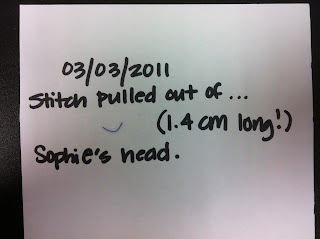 03/03/2011
Stitch pulled out of ...
(1.4 cm long!)
Sophie's head.